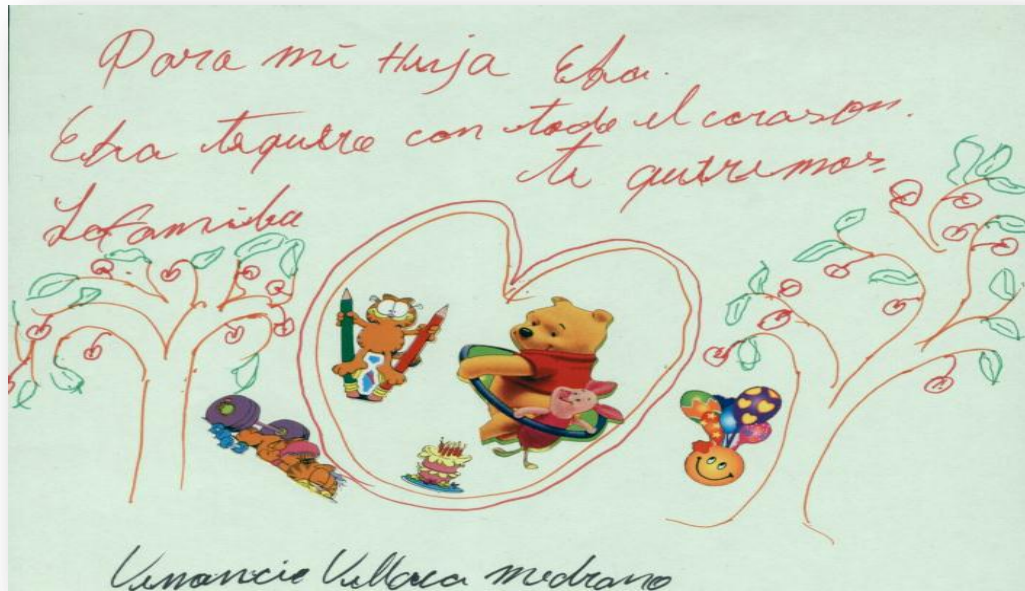 Para mi Huija Eba.
Eba tequiere con todo el corason.
te queremos
La familia
Venancio Villaca medrano